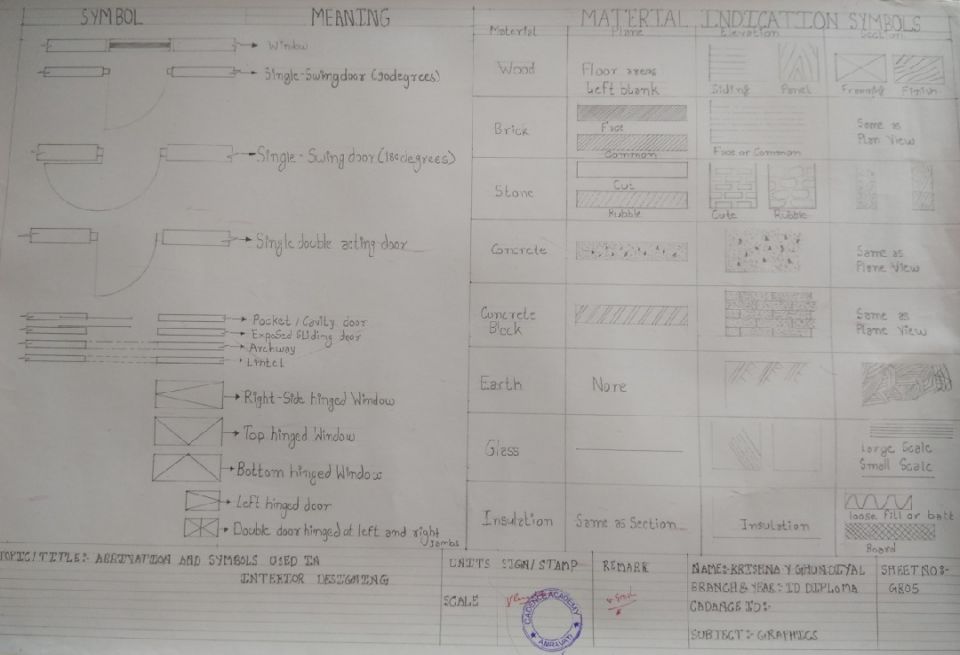 SYMBOL MEANING
Window
Single-Swing door (90degrees)
Single-Swing door (180degrees)
Single double acting door
Pocket / Cavity door
Exposed Sliding door
Archway
Lintel
Right-Side hinged Window
Top hinged Window
Bottom hinged Window
Left hinged door
Double door hinged at left and right
Jambs
MATERIAL INDICATION SYMBOLS
Material Plane Elevation Section
Wood
Floor areas
Left blank
Siding Panel Framing Finish
Brick
Face
Common
Face or Common
Same as
Plan View
Stone
Cut
Rubble
Cute Rubble
Concrete
Same as
Plane View
Concrete
Block
Same as
Plane View
Earth None
Glass
Large Scale
Small Scale
Insulation Same as Section Insulation
loose fill or batt
Board
TOPIC/TITLE:- AND SYMBOLS USED IN
INTERIOR DESIGNING
UNITS SIGN/STAMP REMARK
SCALE
CADENCE ACADEMY
AMRAVATI
NAME:-KRISHNA Y
BRANCH & YEAR:- ID DIPLOMA
CADANCE ID:-
SUBJECT:- GRAPHICS
SHEET NO:-
GR05